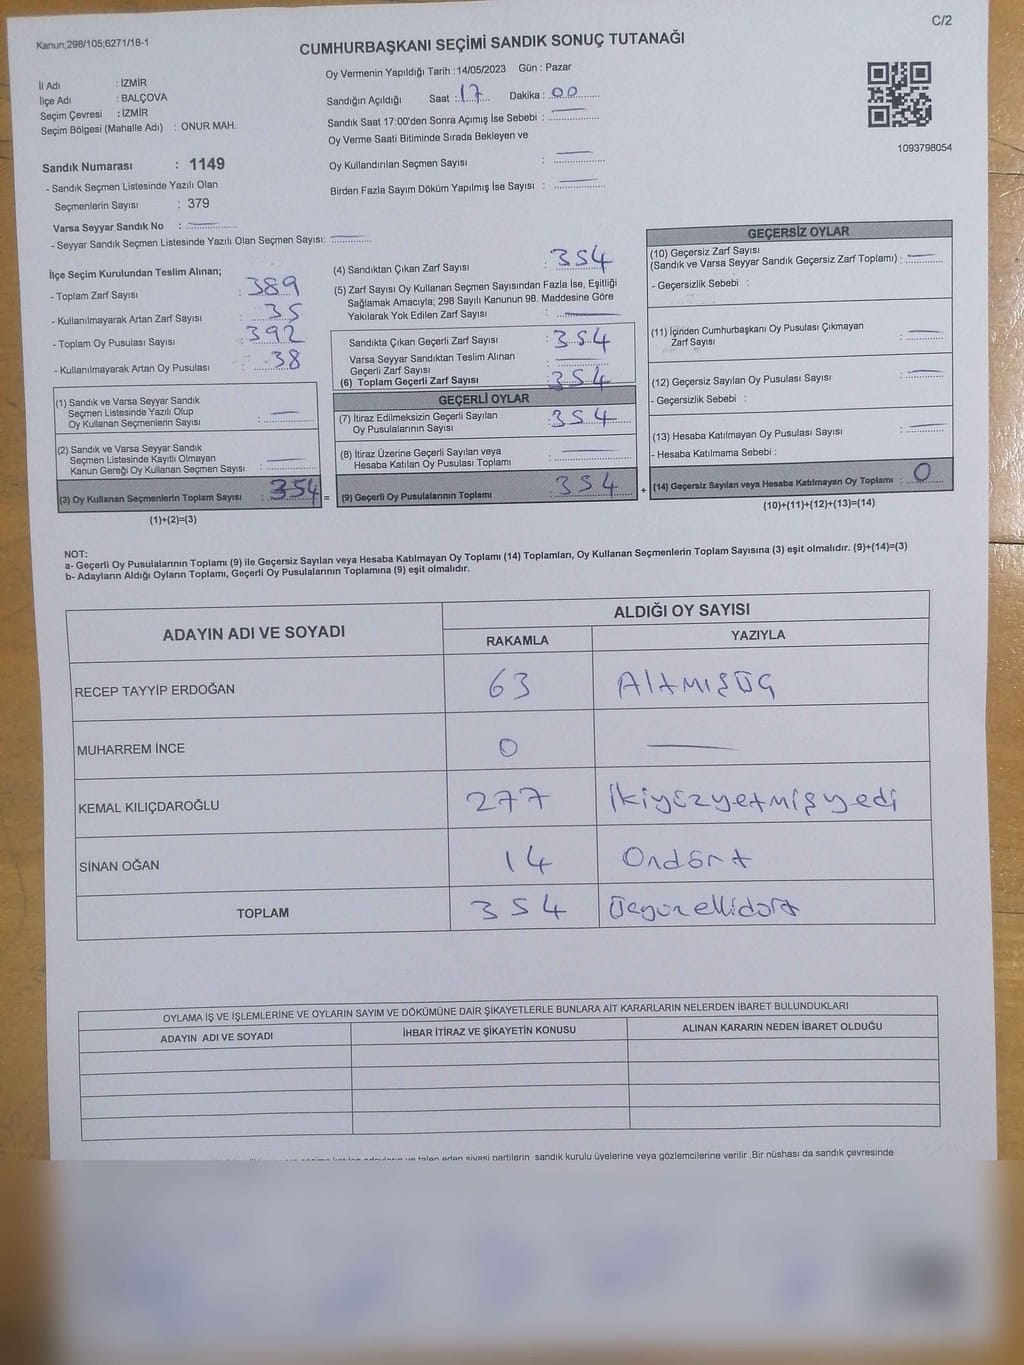 C/2
Kanun;298/105;6271/18-1
CUMHURBAŞKANI SEÇİMİ SANDIK SONUÇ TUTANAĞI
İl Adı : İZMİR
İlçe Adı : BALÇOVA
Seçim Çevresi : İZMİR
Seçim Bölgesi (Mahalle Adı) : ONUR MAH.
Sandık Numarası : 1149
- Sandık Seçmen Listesinde Yazılı Olan
Seçmenlerin Sayısı : 379
Varsa Seyyar Sandık No :
- Seyyar Sandık Seçmen Listesinde Yazılı Olan Seçmen Sayısı:
Oy Vermenin Yapıldığı Tarih : 14/05/2023 Gün : Pazar
Sandığın Açıldığı Saat : 17 Dakika : 00
Sandık Saat 17:00'den Sonra Açımış İse Sebebi :
Oy Verme Saati Bitiminde Sırada Bekleyen ve
Oy Kullandırılan Seçmen Sayısı :
Birden Fazla Sayım Döküm Yapılmış İse Sayısı :
1093798054
İlçe Seçim Kurulundan Teslim Alınan;
- Toplam Zarf Sayısı : 389
- Kullanılmayarak Artan Zarf Sayısı : 35
- Toplam Oy Pusulası Sayısı : 392
- Kullanılmayarak Artan Oy Pusulası : 38
(1) Sandık ve Varsa Seyyar Sandık
Seçmen Listesinde Yazılı Olup
Oy Kullanan Seçmenlerin Sayısı :
(2) Sandık ve Varsa Seyyar Sandık
Seçmen Listesinde Kayıtlı Olmayan
Kanun Gereği Oy Kullanan Seçmen Sayısı :
(3) Oy Kullanan Seçmenlerin Toplam Sayısı : 354 =
(1)+(2)=(3)
(4) Sandıktan Çıkan Zarf Sayısı : 354
(5) Zarf Sayısı Oy Kullanan Seçmen Sayısından Fazla İse, Eşitliği
Sağlamak Amacıyla; 298 Sayılı Kanunun 98. Maddesine Göre
Yakılarak Yok Edilen Zarf Sayısı :
Sandıkta Çıkan Geçerli Zarf Sayısı : 354
Varsa Seyyar Sandıktan Teslim Alınan
Geçerli Zarf Sayısı :
(6) Toplam Geçerli Zarf Sayısı : 354
GEÇERLİ OYLAR
(7) İtiraz Edilmeksizin Geçerli Sayılan
Oy Pusulalarının Sayısı : 354
(8) İtiraz Üzerine Geçerli Sayılan veya
Hesaba Katılan Oy Pusulası Toplamı :
(9) Geçerli Oy Pusulalarının Toplamı : 354 +
GEÇERSİZ OYLAR
(10) Geçersiz Zarf Sayısı
(Sandık ve Varsa Seyyar Sandık Geçersiz Zarf Toplamı) :
- Geçersizlik Sebebi :
(11) İçinden Cumhurbaşkanı Oy Pusulası Çıkmayan
Zarf Sayısı :
(12) Geçersiz Sayılan Oy Pusulası Sayısı :
- Geçersizlik Sebebi :
(13) Hesaba Katılmayan Oy Pusulası Sayısı :
- Hesaba Katılmama Sebebi :
(14) Geçersiz Sayılan veya Hesaba Katılmayan Oy Toplamı : 0
(10)+(11)+(12)+(13)=(14)
NOT:
a- Geçerli Oy Pusulalarının Toplamı (9) ile Geçersiz Sayılan veya Hesaba Katılmayan Oy Toplamı (14) Toplamları, Oy Kullanan Seçmenlerin Toplam Sayısına (3) eşit olmalıdır. (9)+(14)=(3)
b- Adayların Aldığı Oyların Toplamı, Geçerli Oy Pusulalarının Toplamına (9) eşit olmalıdır.
ADAYIN ADI VE SOYADI ALDIĞI OY SAYISI
RAKAMLA YAZIYLA
RECEP TAYYİP ERDOĞAN 63 Altmışüç
MUHARREM İNCE 0
KEMAL KILIÇDAROĞLU 277 ikiyüzyetmişyedi
SİNAN OĞAN 14 Ondört
TOPLAM 354 Üçyüzellidört
OYLAMA İŞ VE İŞLEMLERİNE VE OYLARIN SAYIM VE DÖKÜMÜNE DAİR ŞİKAYETLERLE BUNLARA AİT KARARLARIN NELERDEN İBARET BULUNDUKLARI
ADAYIN ADI VE SOYADI İHBAR İTİRAZ VE ŞİKAYETİN KONUSU ALINAN KARARIN NEDEN İBARET OLDUĞU
siyasi partilerin sandık kurulu üyelerine veya gözlemcilerine verilir .Bir nüshası da sandık çevresinde